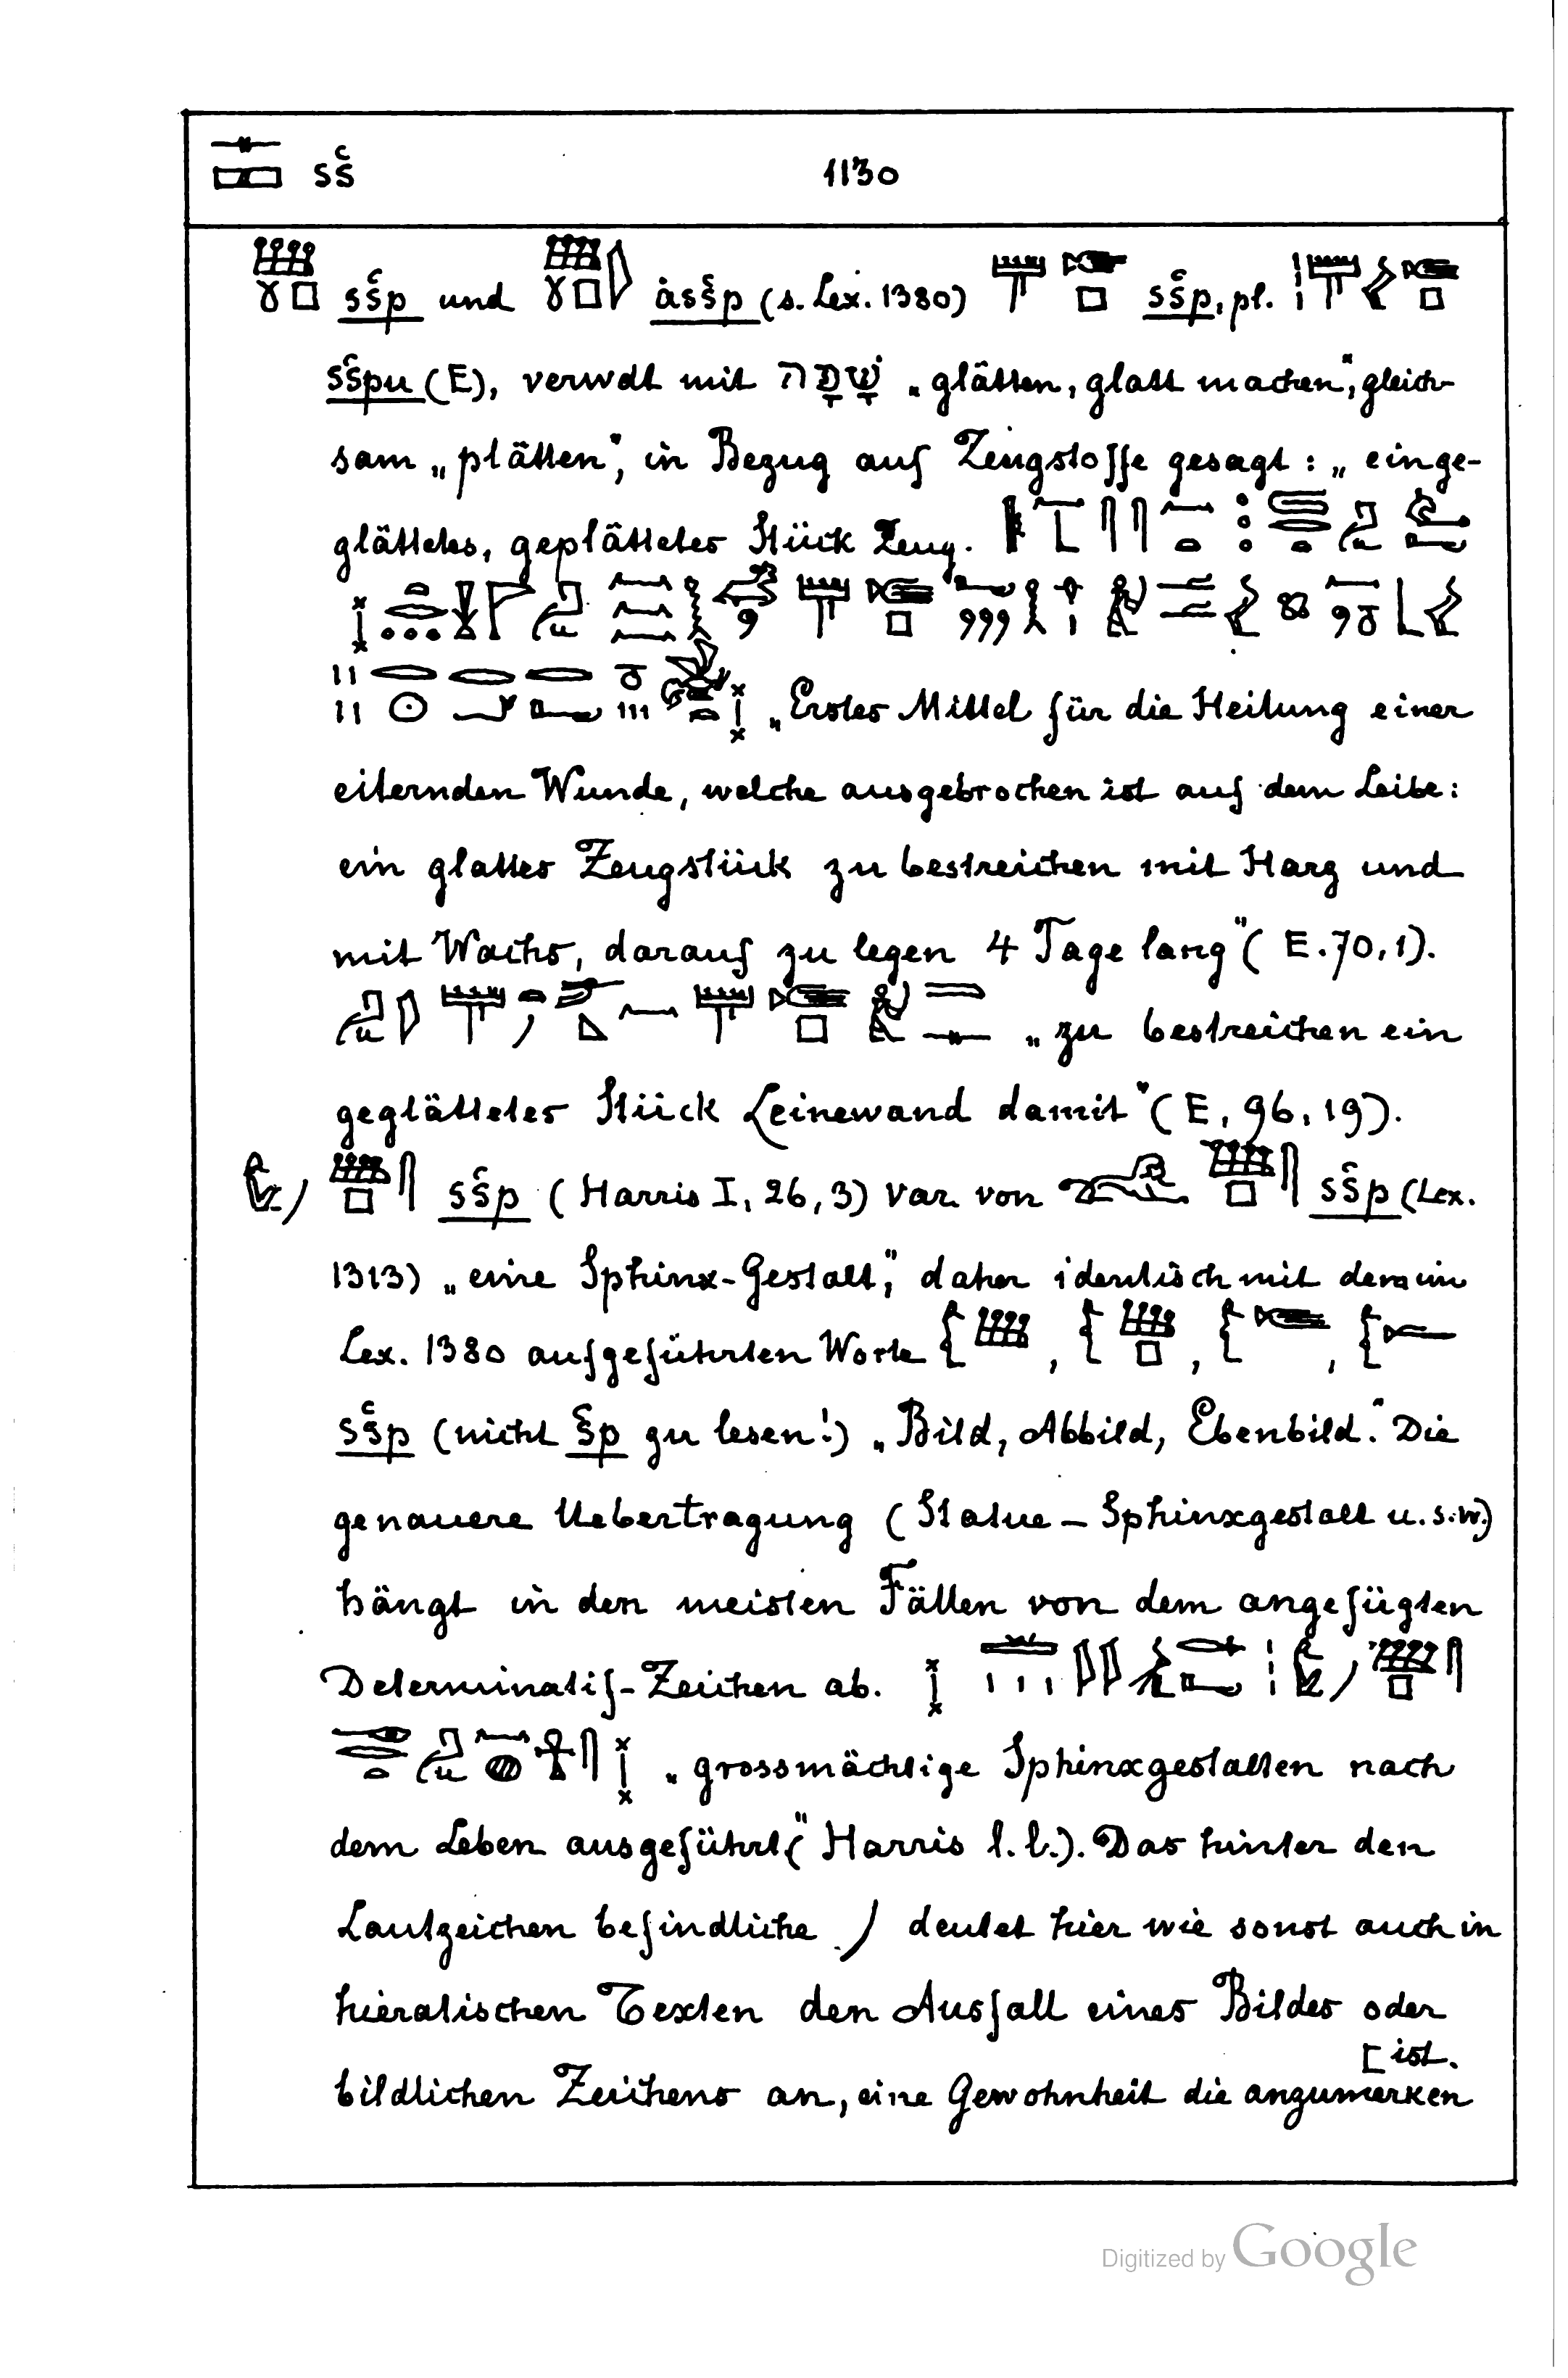 sš 1130
sšp und àsšp (s. Lex. 1380) sšp, pl.
sšpu (E), verwdt mit שָׁפָה „glätten, glatt machen", gleich-
sam „plätten", in Bezug auf Zeugstoffe gesagt: „einge-
glättetes, geplättetes Stück Zeug.
„Erstes Mittel für die Heilung einer
eiternden Wunde, welche ausgebrochen ist auf dem Leibe:
ein glattes Zeugstück zu bestreichen mit Harz und
mit Wachs, darauf zu legen 4 Tage lang" (E. 70, 1).
„zu bestreichen ein
geglättetes Stück Leinewand damit" (E, 96, 19).
sšp (Harris I, 26, 3) var. von sšp (Lex.
1313) „eine Sphinx-Gestalt", daher identisch mit dem im
Lex. 1380 aufgeführten Worte , , ,
sšp (nicht šp zu lesen!) „Bild, Abbild, Ebenbild." Die
genauere Uebertragung (Statue – Sphinxgestalt u.s.w.)
hängt in den meisten Fällen von dem angefügten
Determinatif-Zeichen ab.
„grossmächtige Sphinxgestalten nach
dem Leben ausgeführt" (Harris l. l.). Das hinter den
Lautzeichen befindliche deutet hier wie sonst auch in
hieratischen Texten den Ausfall eines Bildes oder
bildlichen Zeichens an, eine Gewohnheit die anzumerken
[ist.
Digitized by Google